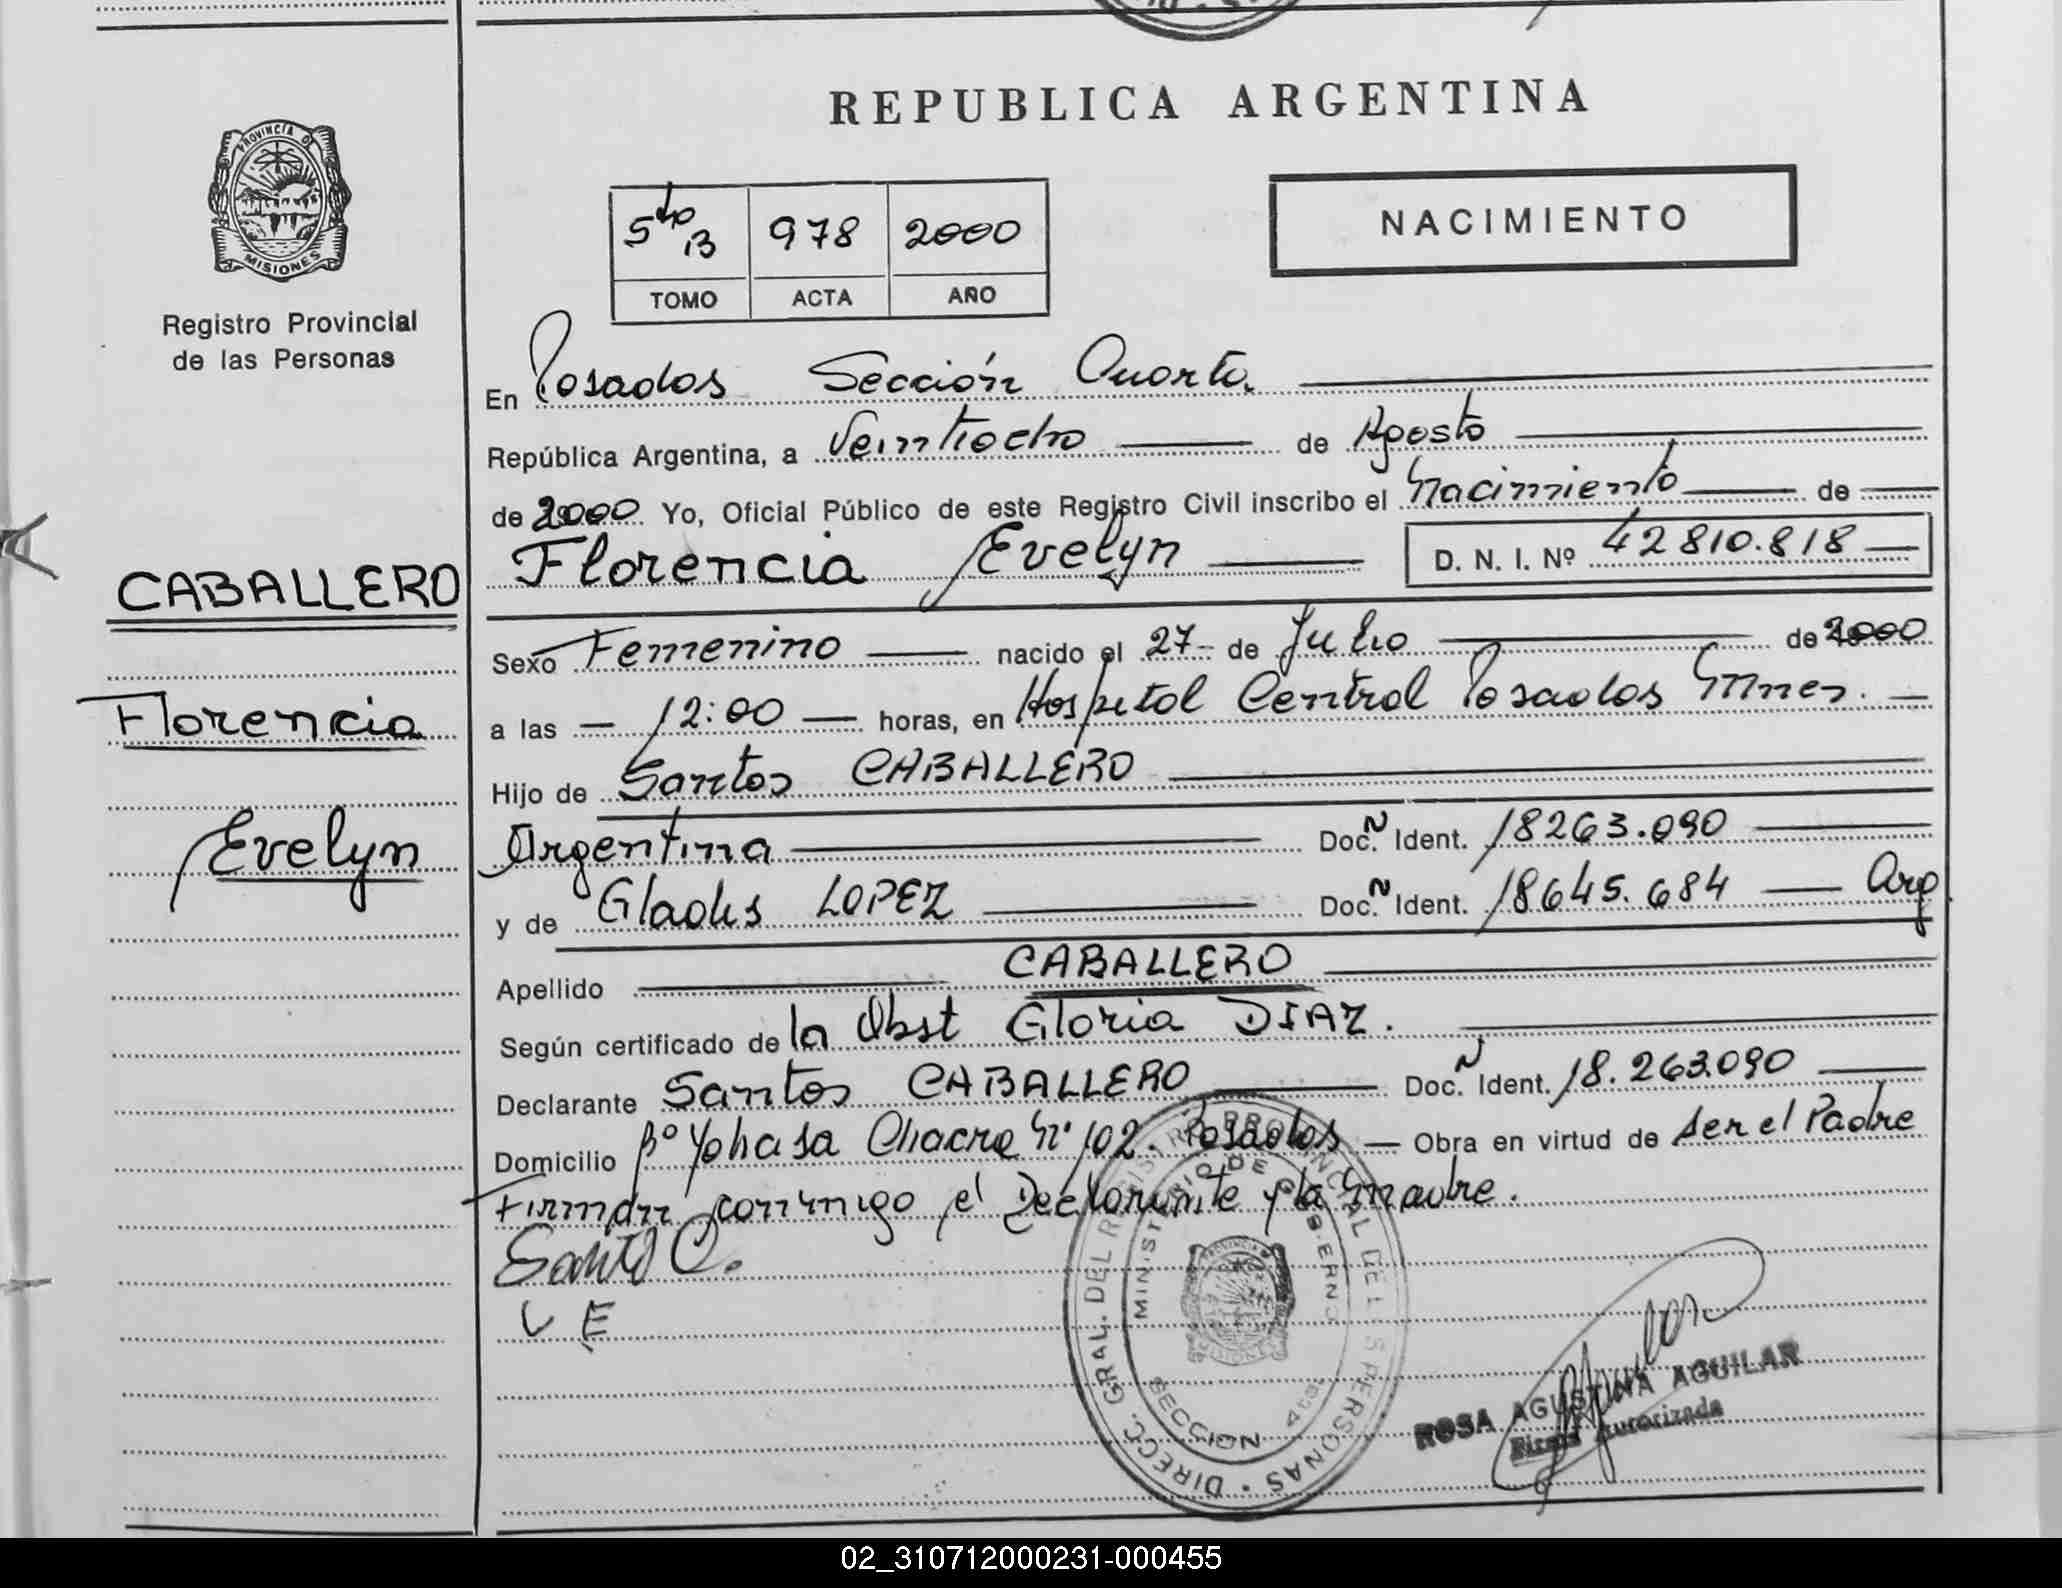 REPUBLICA ARGENTINA
PROVINCIA DE
MISIONES
Registro Provincial
de las Personas
5to B 978 2000
TOMO ACTA AÑO
NACIMIENTO
En Posadas Sección Cuarta.
República Argentina, a Veintiocho de Agosto
de 2000 Yo, Oficial Público de este Registro Civil inscribo el Nacimiento de
Florencia Evelyn D. N. I. Nº 42810.818
CABALLERO
Florencia
Evelyn
Sexo Femenino nacido el 27 de Julio de 2000
a las 12:00 horas, en Hospital Central Posadas Mnes.
Hijo de Santos CABALLERO
Argentina Doc. N Ident. 18263.090
y de Gladis LOPEZ Doc. N Ident. 18645.684 Arg
Apellido CABALLERO
Según certificado de la Obst Gloria DIAZ.
Declarante Santos CABALLERO Doc. N Ident. 18.263.090
Domicilio Bº Yohasa Chacra Nº 102. Posadas Obra en virtud de ser el Padre
Firman conmigo el Declarante y la Madre.
Santo C.
L E
DIRECC. GRAL. DEL REGISTRO PROVINCIAL DE LAS PERSONAS
MINISTERIO DE GOBIERNO
SECCION 4ta.
ROSA AGUSTINA AGUILAR
Firma Autorizada
02_310712000231-000455